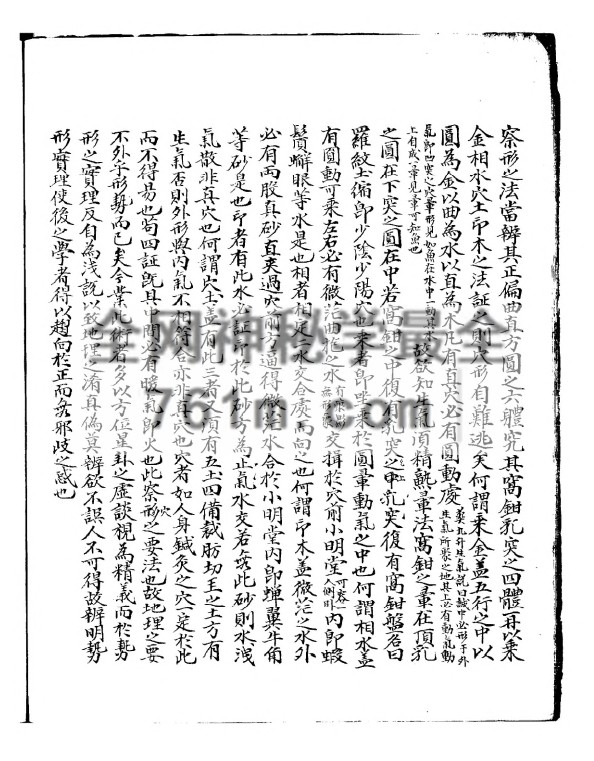 察形之法當辨其正偏曲直方圓之六體究其窩鉗乳突之四體再以乘
金相水穴土印木之法証之則穴形自難逃矣何謂乘金蓋五行之中以
圓為金以曲為水以直為木凡有真穴必有圓動處
生氣所聚之地具必有動氣動
氣即凹突之穴暈形見如魚在水中一動其水
上有成一暈見暈可知魚也
故欲知生氣須精熟暈法窩鉗之暈在頂乳
之圓在下突之圓在中若窩鉗之中復有乳突之中乳突復有窩鉗盤名曰
羅紋土縮即少陰少陽穴也乘者即坐乘於圓暈動氣之中也何謂相水蓋
有圓動可乘左右必有微茫曲抱之水
交揖於穴前小明堂
可容一
人側卧
內即蝦
鬚蠏眼等水是也相者相定二水交合處而向之也何謂印木蓋微茫之水外
必有兩股真砂直夾過穴前方逼得微茫水合於小明堂內即蟬翼牛角
等砂是也印者有此水必証印於此砂方為正氣水交若無此砂則水洩
氣散非真穴也何謂穴土蓋有此三者又須有五土四備裁肪切玉之土方有
生氣否則外形與內氣不相符合亦非真穴也穴者如人身鍼灸之穴一定於此
而不得易也苟四証既具中間必有暖氣即火也此察形之要法也故地理之要
不外乎形勢而已矣今業此術者多以方位星卦之虛談視為精義而於勢
形之實理反自為淺說以致地理之淆真偽莫辨欲不誤人不可得故辨明勢
形實理使後之學者得以趨向於正而無邪歧之惑也
全网神秘 最全